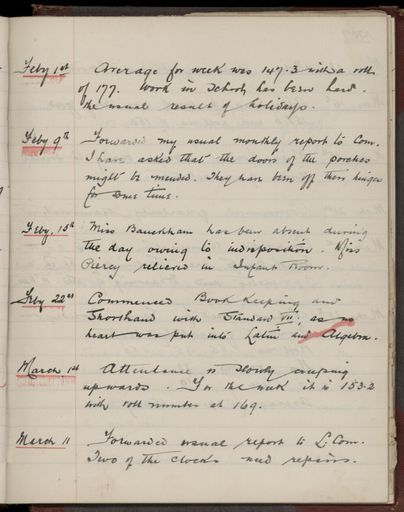 Feby 1st Average for week was 147.3 with a roll
of 177. Work in School has been hard.
the usual result of holidays.
Feby 9th Forwarded my usual monthly report to Com.
I have asked that the doors of the porches
might be mended. They have been off their hinges
for some time.
Feby. 15th Miss Banckham has been absent during
the day owing to indisposition. Miss
Piercy relieved in Infant Room.
Feby 22nd Commenced Book Keeping and
Shorthand with Standard VII, as no
heart was put into Latin and Algebra.
March 1st Attendance is slowly creeping
upwards. For the week it is 153.2
with roll number at 169.
March 11 Forwarded usual report to L. Com.
Two of the clocks need repairs.